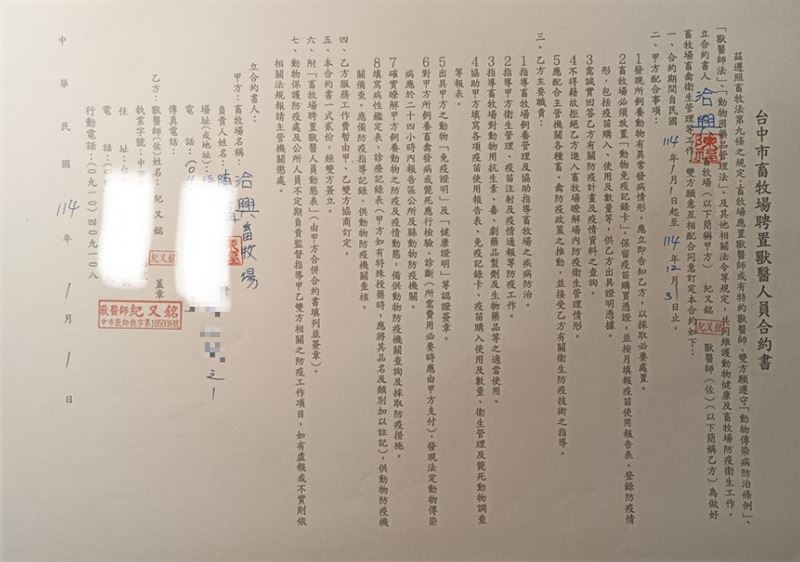 台中市畜牧場聘置獸醫人員合約書
茲遵照畜牧法第九條之規定:畜牧場應置獸醫師或有特約獸醫師,雙方願遵守「動物傳染病防治條例」、
「獸醫師法」、「動物用藥品管理法」、及其他相關法令等規定,共同維護動物健康及畜牧場防疫衛生工作。
立合約書人 洽興 畜牧場(以下簡稱甲方) 紀又銘 獸醫師(佐)(以下簡稱乙方)為做好
畜牧場畜禽衛生管理等工作,雙方願意互相配合同意訂定本合約如下:
一、合約期間自民國 114 年 1 月 1 日起至 114 年 12 月 31 日止。
二、甲方配合事項:
1 發現所飼養動物有異常發病情形,應立即告知乙方,以採取必要處置。
2 畜牧場必須放置「動物免疫記錄卡」,保留疫苗購買憑證,並按月填報疫苗使用報告表,登錄防疫情
形,包括疫苗購入、使用及數量等,供乙方出具證明憑據。
3 需誠實回答乙方有關防疫計畫及疫情資料之查詢。
4 不得藉故拒絕乙方進入畜牧場瞭解場內防疫衛生管理情形。
5 應配合主管機關各種畜、禽防疫政策之推動,並接受乙方有關衛生防疫技術之指導。
三、乙方主要職責:
1 指導畜牧場飼養管理及協助指導畜牧場之疾病防治。
2 指導甲方衛生管理、疫苗注射及疫情通報等防疫工作。
3 指導畜牧場對動物用抗生素、毒、劇藥品製劑及生物藥品等之適當使用。
4 協助甲方填寫各項疫苗使用報告表、免疫記錄卡、疫苗購入使用及數量、衛生管理及斃死動物調查
等報表。
5 出具甲方之動物「免疫證明」及「健康證明」等認證簽章。
6 對甲方所飼養畜禽發病或斃死應作檢驗、診斷(所需費用必要時應由甲方支付),發現法定動物傳染
病應於二十四小時內報告區公所及縣動物防疫機關。
7 確實瞭解甲方飼養動物之防疫及疫情動態,備供動物防疫機關查詢及採取防疫措施。
8 填寫病性鑑定表、診療記錄表(甲方如有特殊投藥時,應將其品名及類別加以註記),供動物防疫機
關備查。應備防疫指導記錄,供動物防疫機關查核。
四、乙方服務工作費暫由甲、乙雙方協商訂定。
五、本合約書一式貳份,經雙方簽立。
六、附「畜牧場聘置獸醫人員動態表」(由甲方合併合約書填列並簽章)。
七、動物保護防疫處及公所人員不定期負責監督指導甲乙雙方相關之防疫工作項目,如有虛報或不實則依
相關法規報請主管機關懲處。
立合約書人:
甲方:畜牧場名稱: 洽興畜牧場
負責人姓名: 陳
場址(或地址):
之1
電 話:(0
傳真電話:
乙方:獸醫師(佐)姓名: 紀又銘 紀又銘 蓋章
執業字號:中
住 址:台
電 話:(
行動電話:(〇九一〇)四〇九一〇八
獸醫師 紀又銘
中市獸師執字第105008號
中 華 民 國 114 年 1 月 1 日